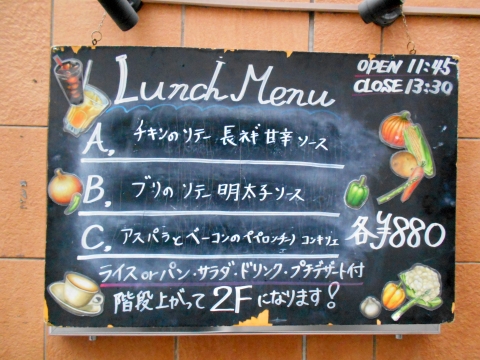 Lunch Menu
OPEN 11:45
CLOSE 13:30
A. チキンのソテー 長ネギ 甘辛 ソース
B. ブリのソテー 明太子ソース
C. アスパラとベーコンのペペロンチーノ コンキリエ
各¥880
ライス or パン・サラダ・ドリンク・プチデザート付
階段上がって 2Fになります!